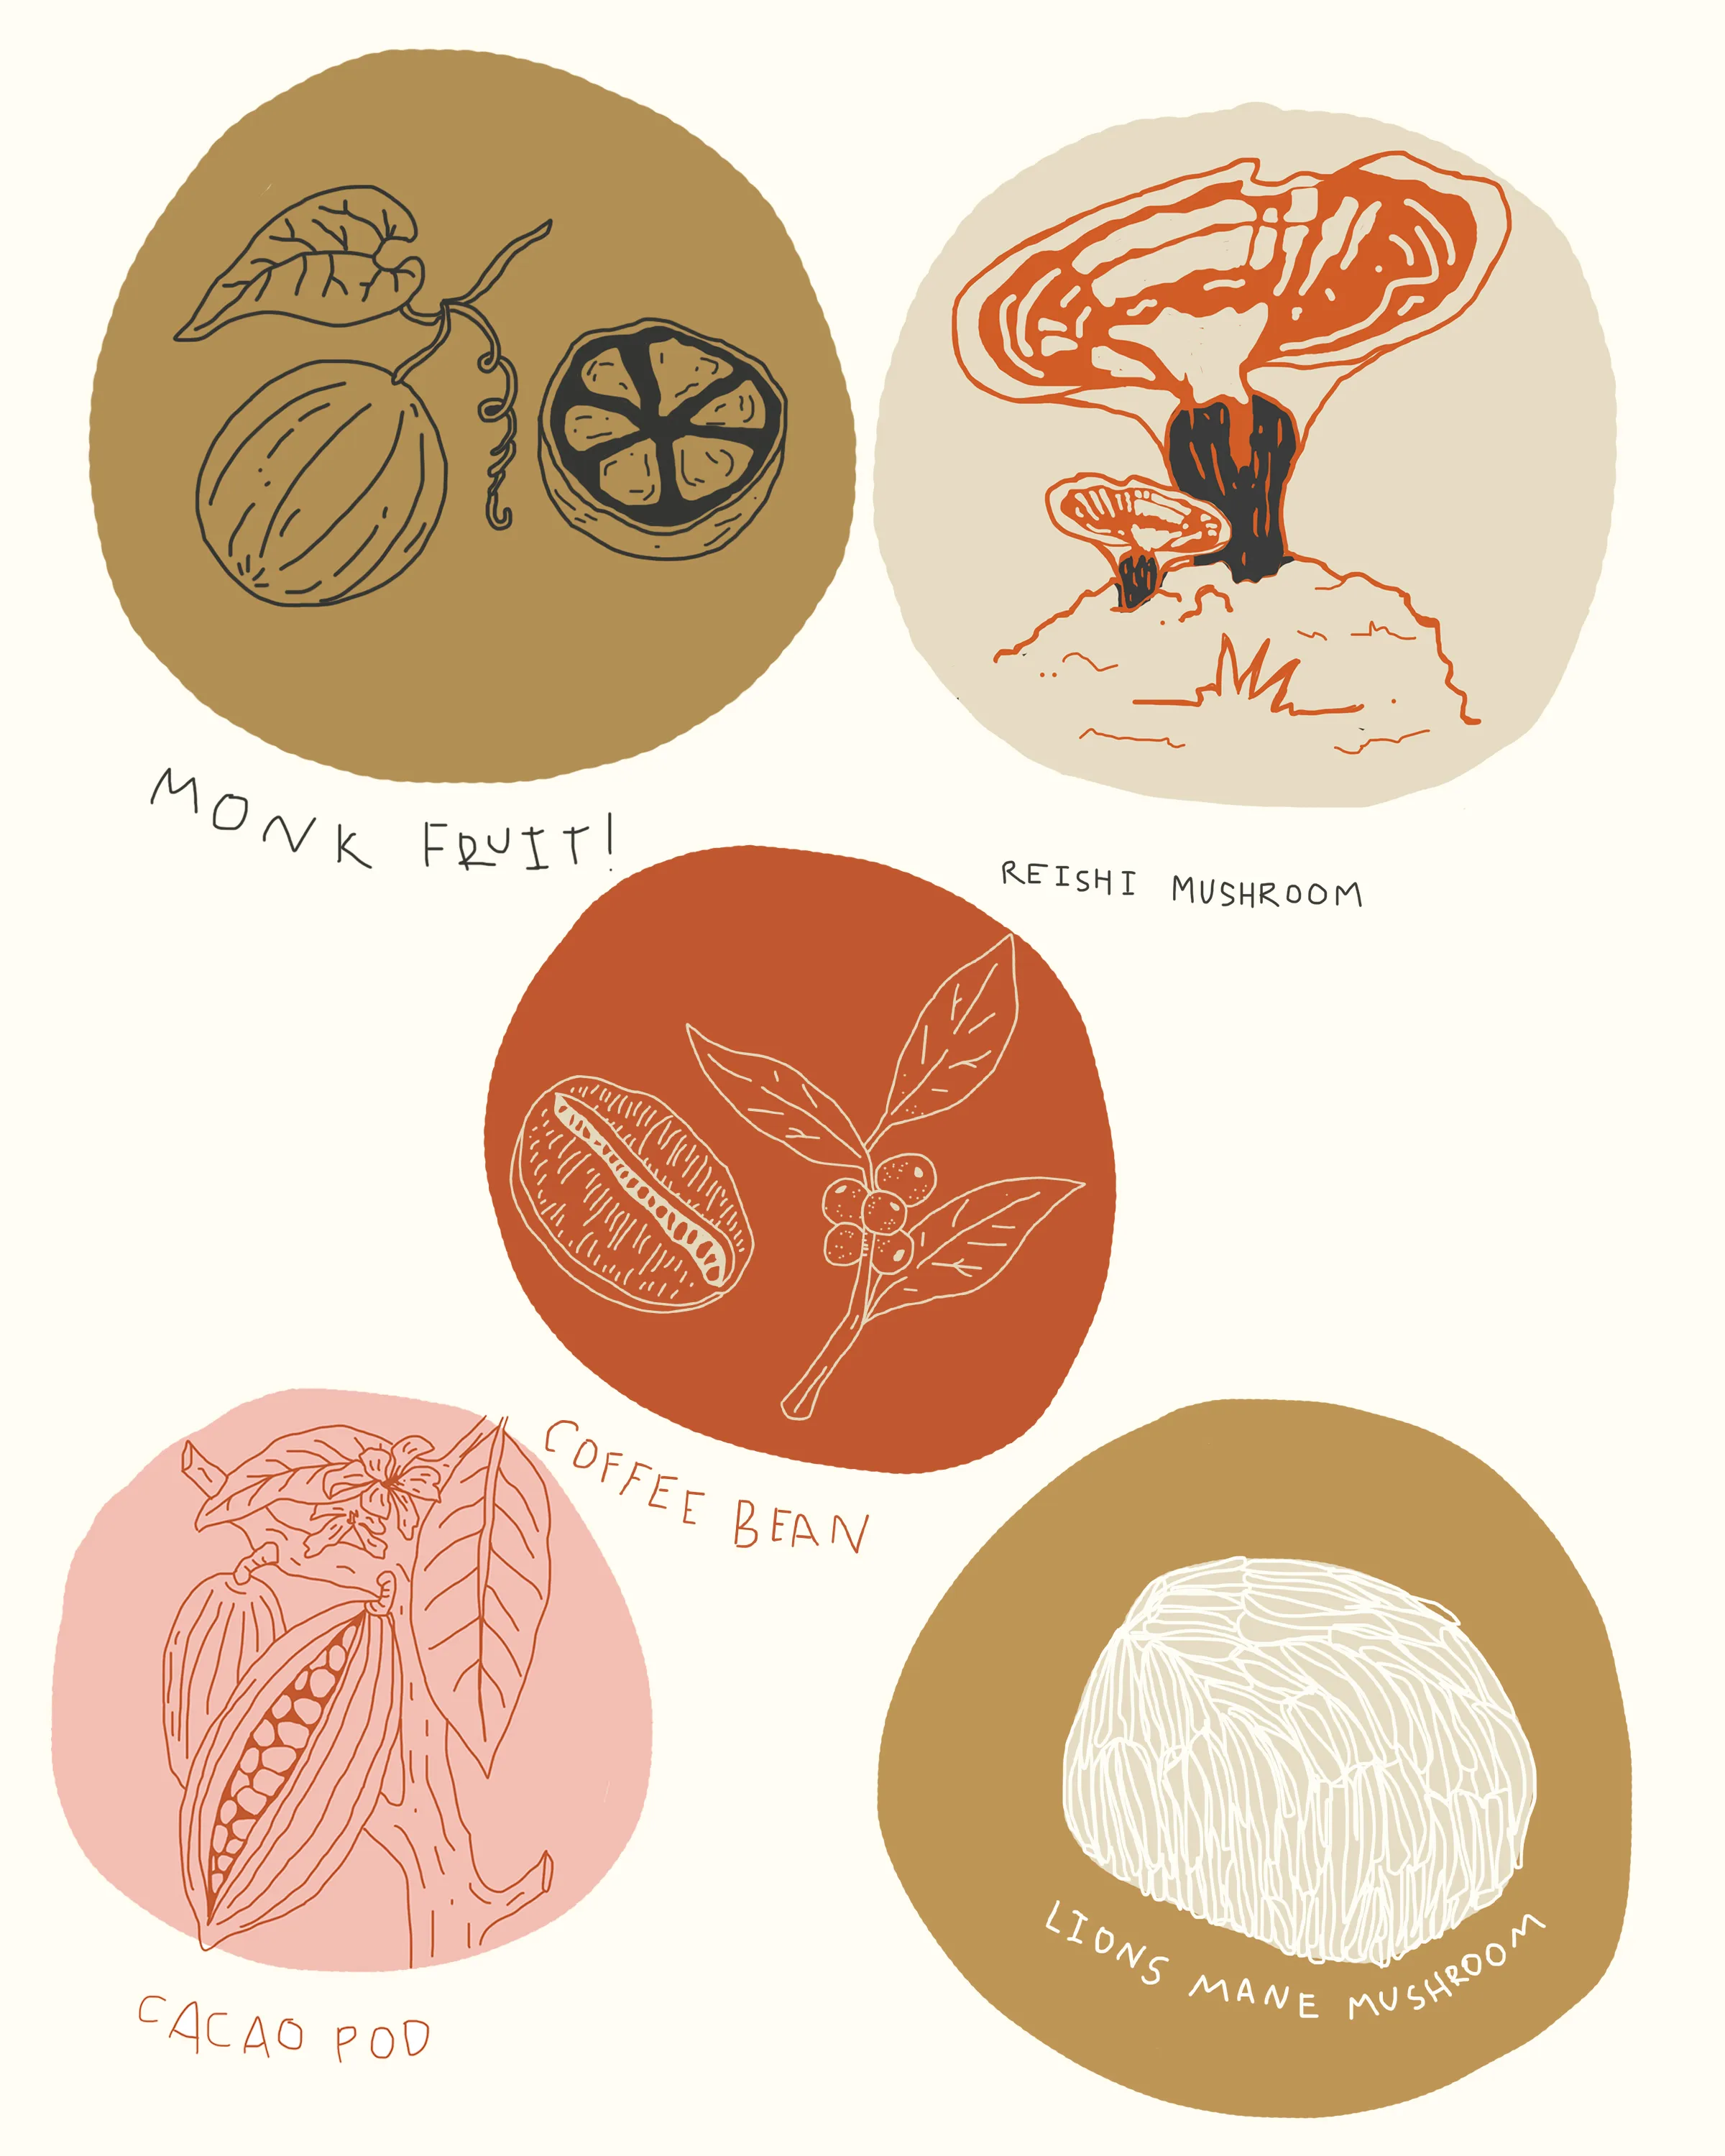 MONK FRUIT!
REISHI MUSHROOM
COFFEE BEAN
CACAO POD
LIONS MANE MUSHROOM